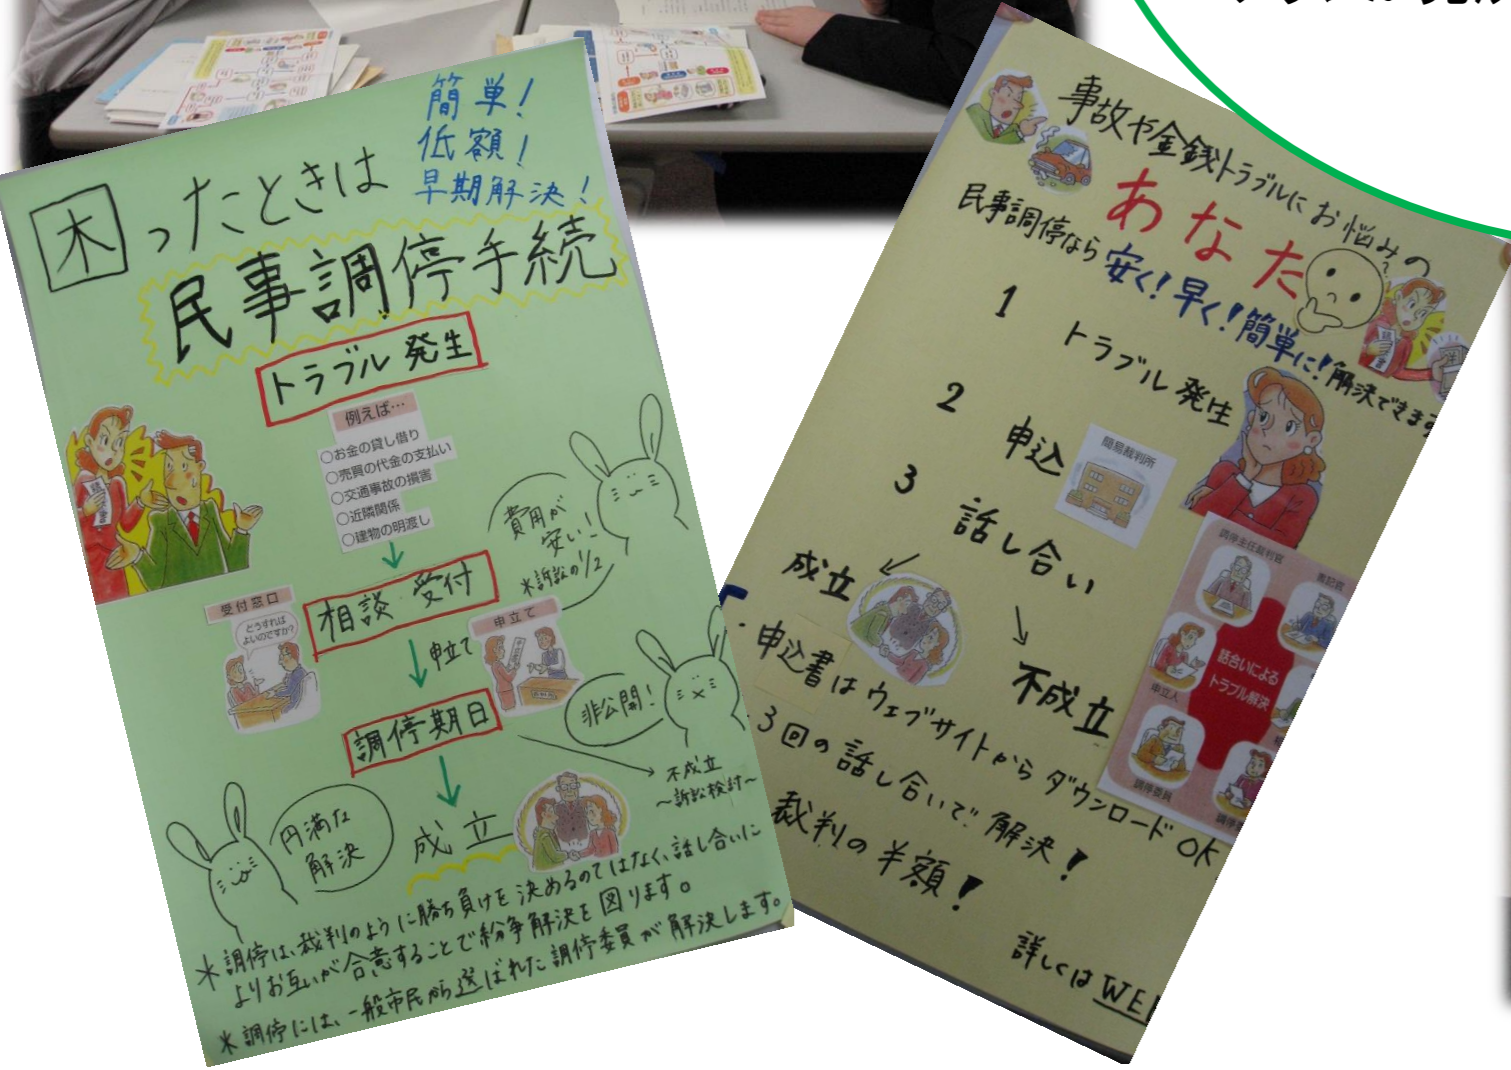 簡単!
低額!
早期解決!
困ったときは
民事調停手続
トラブル発生
例えば…
○お金の貸し借り
○売買の代金の支払い
○交通事故の損害
○近隣関係
○建物の明渡し
費用が
安い!
※訴訟の1/2
相談・受付
受付窓口
どうすれば
よいのですか?
申立て
申立て
調停期日
非公開!
不成立
〜訴訟検討〜
円満な
解決
成立
※調停は、裁判のように勝ち負けを決めるのではなく、話し合いに
よりお互いが合意することで紛争解決を図ります。
※調停には、一般市民から選ばれた調停委員が解決します。
事故や金銭トラブルにお悩みの
あなた
民事調停なら安く!早く!簡単に!解決できます
1 トラブル発生
2 申込
簡易裁判所
3 話し合い
成立
不成立
調停主任裁判官
書記官
申立人
話合いによる
トラブル解決
調停委員
・申込書はウェブサイトからダウンロードOK
・3回の話し合いで解決!
裁判の半額!
詳しくはWE